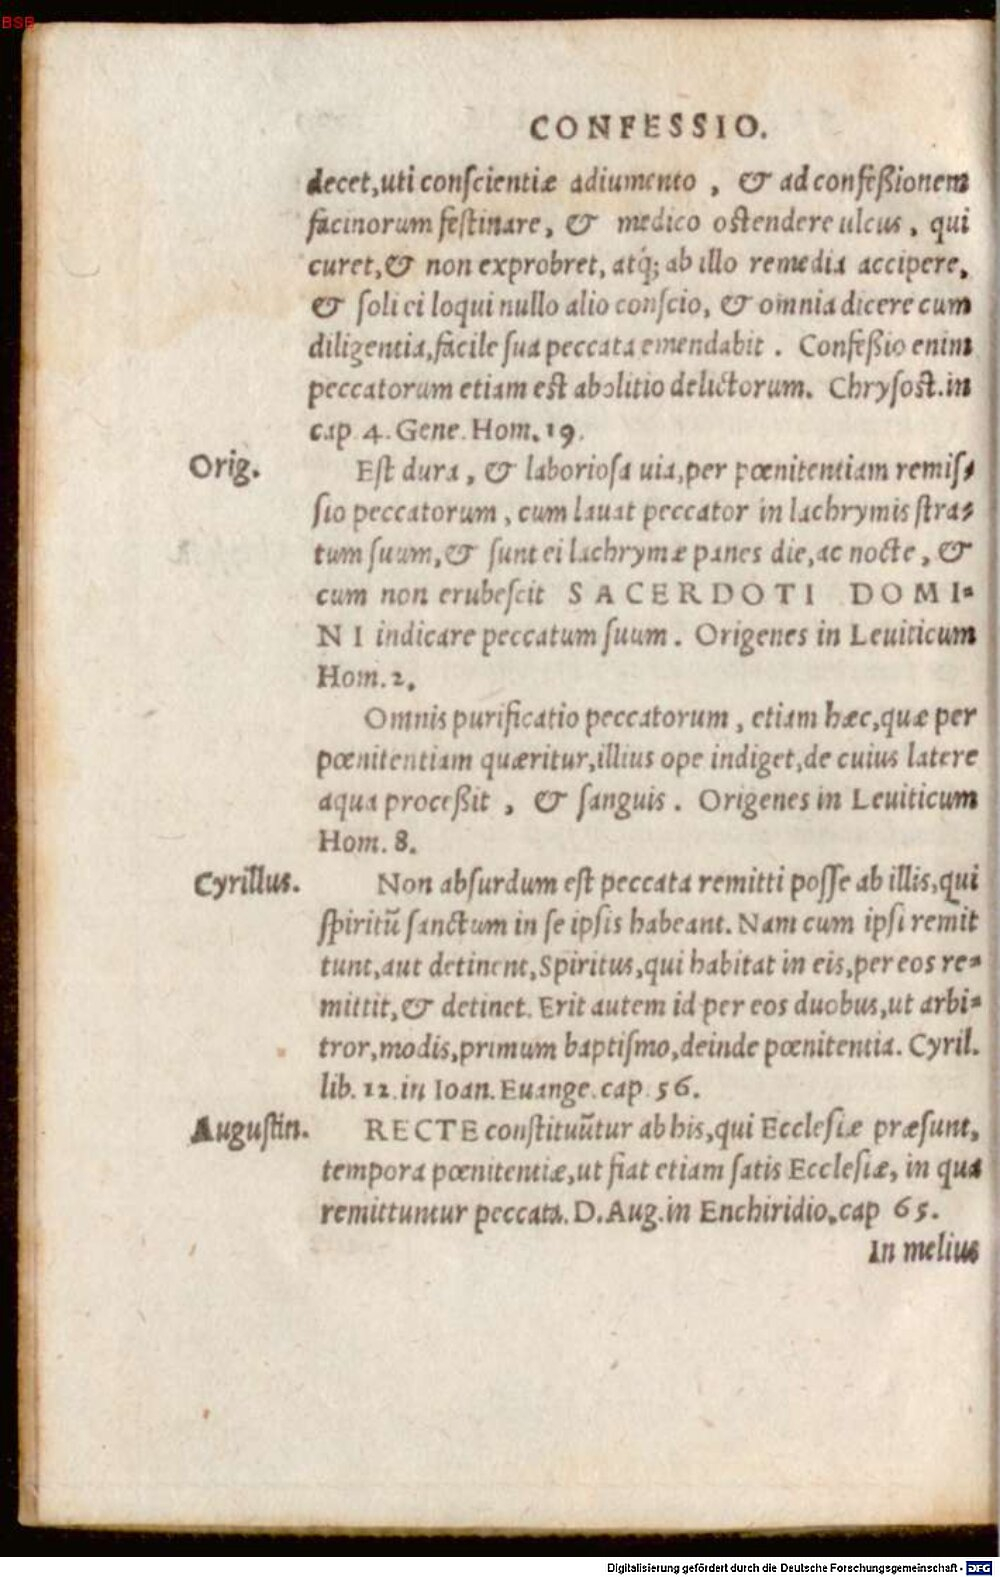 BSB
CONFESSIO.
decet, uti conscientiæ adiumento, & ad confeßionem
facinorum festinare, & medico ostendere ulcus, qui
curet, & non exprobret, atq́; ab illo remedia accipere,
& soli ei loqui nullo alio conscio, & omnia dicere cum
diligentia, facile sua peccata emendabit. Confeßio enim
peccatorum etiam est abolitio delictorum. Chrysost. in
cap 4. Gene. Hom. 19.
Orig. Est dura, & laboriosa uia, per pœnitentiam remis-
sio peccatorum, cum lauat peccator in lachrymis stra-
tum suum, & sunt ei lachrymæ panes die, ac nocte, &
cum non erubescit SACERDOTI DOMI-
NI indicare peccatum suum. Origenes in Leuiticum
Hom. 2.
Omnis purificatio peccatorum, etiam hæc, quæ per
pœnitentiam quæritur, illius ope indiget, de cuius latere
aqua proceßit, & sanguis. Origenes in Leuiticum
Hom. 8.
Cyrillus. Non absurdum est peccata remitti posse ab illis, qui
spiritū sanctum in se ipsis habeant. Nam cum ipsi remit
tunt, aut detinent, Spiritus, qui habitat in eis, per eos re-
mittit, & detinet. Erit autem id per eos duobus, ut arbi-
tror, modis, primum baptismo, deinde pœnitentia. Cyril.
lib. 12. in Ioan. Euange. cap 56.
Augustin. RECTE constituūtur ab his, qui Ecclesiæ præsunt,
tempora pœnitentiæ, ut fiat etiam satis Ecclesiæ, in qua
remittuntur peccata. D. Aug. in Enchiridio. cap 65.
In melius
Digitalisierung gefördert durch die Deutsche Forschungsgemeinschaft - DFG